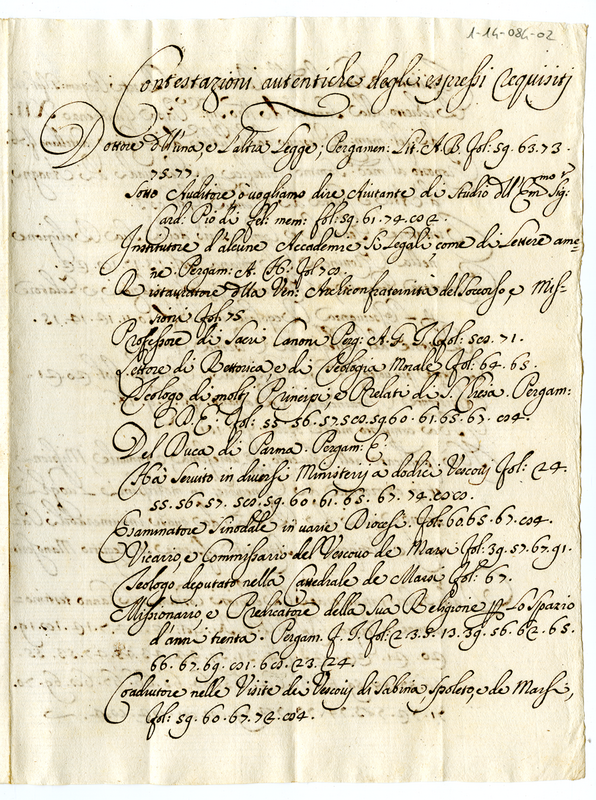 1-14-084-02
Contestazioni autentiche degli espressi Requisitj
Dottore dell'una, e l'altra Legge; Pergamen: Lit. A. B. fol: 59. 63. 73.
75. 77.
Sotto Auditore ò vogliamo dire Aiutante di Studio dell' Em.mo Sig:
Card. Pio di fel: mem: fol: 59. 61. 74.
Institutore d'alcune Accademie sì Legali come di Lettere ame=
ne. Pergam: A. H: fol:
Ristauratore della Ven: Archiconfraternita del Soccorso, e Mis=
sione fol: 75
Professore di Sacri Canoni Perg: A. F. fol: 71.
Lettore di Rettorica e di Teologia Morale fol: 64. 65.
Teologo di molti Principi, e Prelati di S. Chiesa. Pergam:
C. D. E. fol: 55. 56. 57. 59. 60. 61. 65. 67.
Del Duca di Parma. Pergam: E.
Hà servito in diversi Ministerij à dodici Vescovj fol: 24.
55. 56. 57. 59. 60. 61. 65. 67. 74.
Esaminatore Sinodale in varie Diocesi. fol: 60. 65. 67.
Vicario, e Commissario del Vescovo de Marsi fol: 39. 57. 67. 91.
Teologo deputato nella Cattedrale de Marsi fol: 67.
Missionario, e Predicatore della sua Religione per lo spazio
d'anni trenta. Pergam. fol: 2. 3. 8. 13. 39. 56. 62. 65.
66. 67. 69. 23. 24.
Coadiutore nelle Visite de Vescovj di Sabina Spoleto, e de Marsi,
fol: 59. 60. 67. 72.